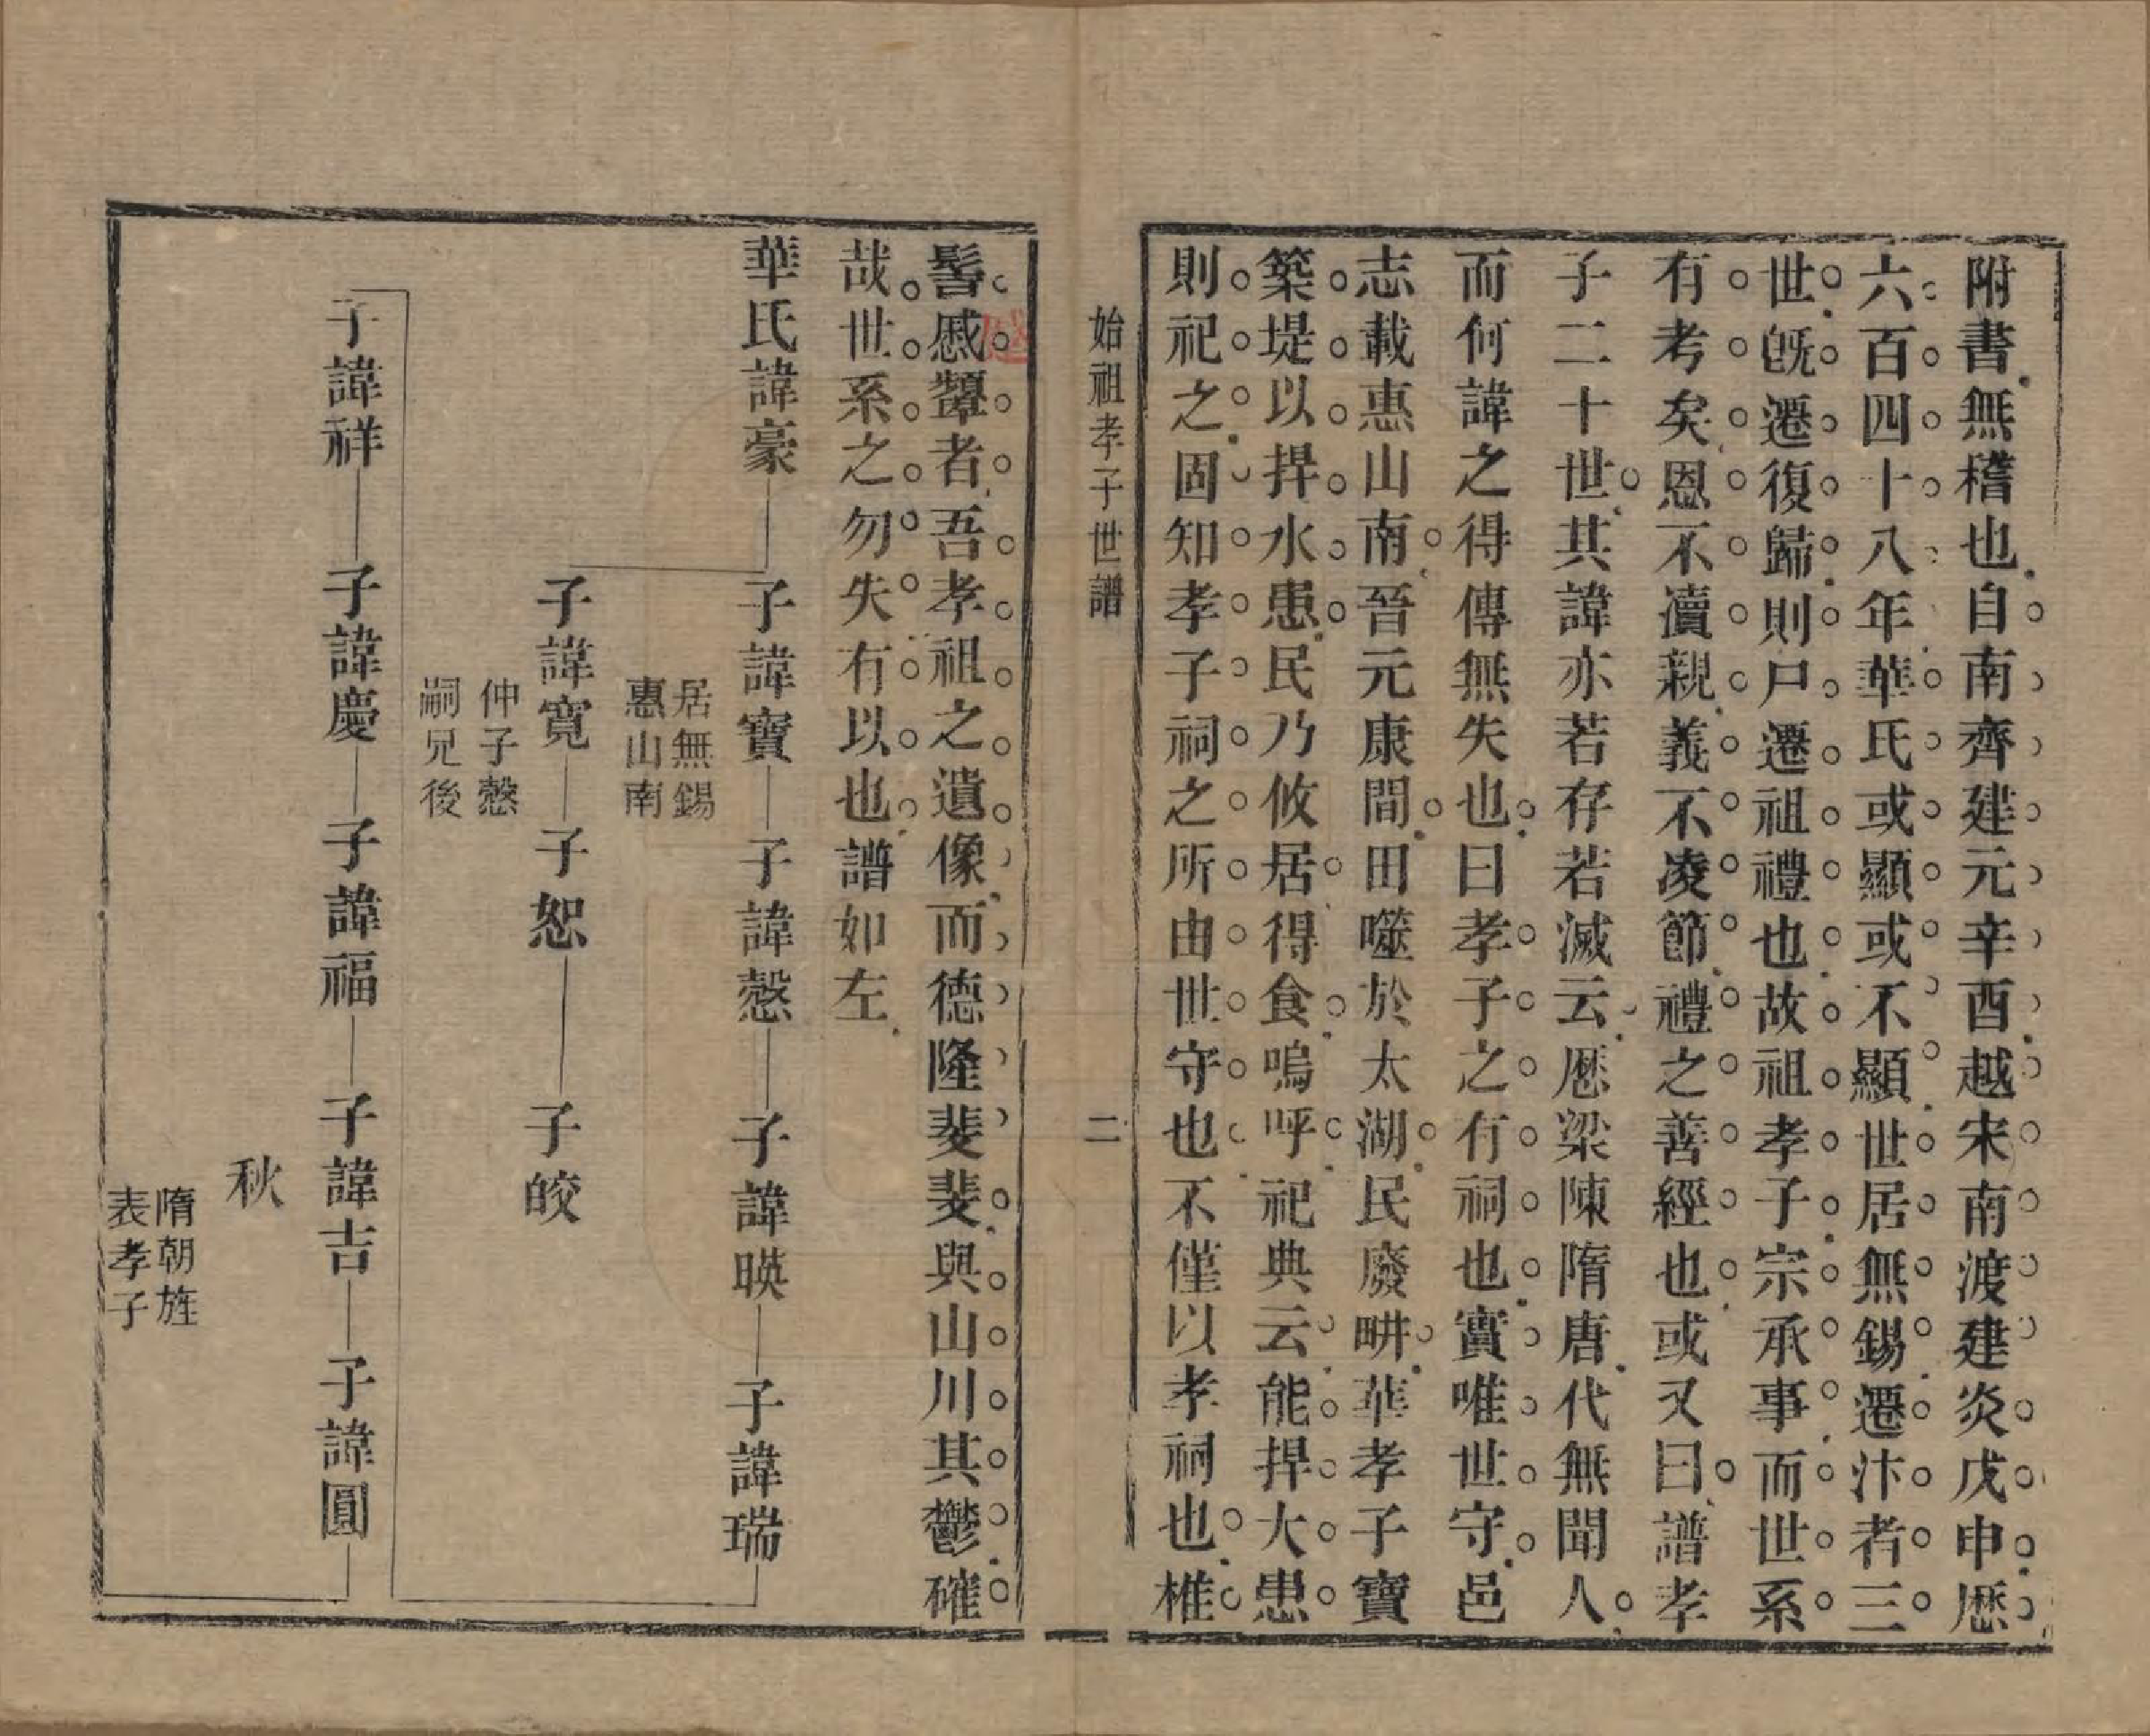 附書無稽也自南齊建元辛酉越宋南渡建炎戊申歷
六百四十八年華氏或顯或不顯世居無錫遷汴者三
世旣遷復歸則尸遷祖禮也故祖孝子宗承事而世系
有考矣恩不瀆親義不凌節禮之善經也或又曰譜孝
子二十世其諱亦若存若滅云歷梁陳隋唐代無聞人
而何諱之得傳無失也曰孝子之有祠也實唯世守邑
志載惠山南晉元康間田噬於太湖民廢畊華孝子寶
築堤以捍水患民乃攸居得食嗚呼祀典云能捍大患
則祀之固知孝子祠之所由世守也不僅以孝祠也椎
始祖孝子世譜
二
髻慼顰者吾孝祖之遺像而德隆斐斐與山川其鬱確
哉世系之勿失有以也譜如左
華氏諱豪 子諱寶 子諱慤 子諱暎 子諱瑞
居無錫
惠山南
子諱寬 子恕 子皎
仲子慤
嗣兄後
子諱祥 子諱慶 子諱福 子諱吉 子諱圓
秋
隋朝旌
表孝子